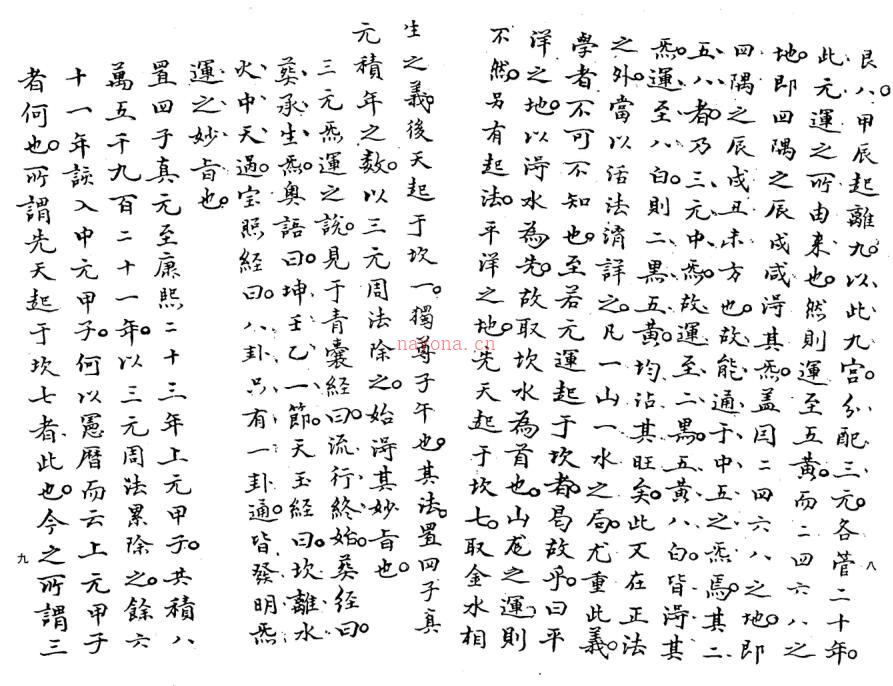 艮八。甲辰起離九。以此九宮分配三元。各管二十年。
此元運之所由来也。然則運至五黄。而二四六八之
地。即四隅之辰戌咸淂其炁。盖因二四六八之地。即
四隅之辰戌丑未方也。故能通于中五之炁焉。其二
五八者。乃三元中炁。故運至二黒五黄八白。皆淂其
炁。運至八白。則二黒五黄。均沾其旺矣。此又在正法
之外。當以活法消詳之。凡一山一水之局。尤重此義。
學者不可不知也。至若元運起于坎者。曷故乎。曰平
洋之地。以淂水為先。故取坎水為首也。山龙之運。則
不然。另有起法。平洋之地。先天起于坎七。取金水相
八
生之義。後天起于坎一。獨尊子午也。其法。置四子真
元積年之数。以三元周法除之。始淂其妙旨也。
三元炁運之說。見于青囊經曰。流行終始。葬經曰。
葬承生炁。奥語曰。坤壬乙一節。天玉經曰。坎離水
火中天過。宝照經曰。八卦只有一卦通。皆發明炁
運之妙旨也。
置四子真元至康熙二十三年上元甲子。共積八
萬五千九百二十一年。以三元周法累除之。餘六
十一年。該入中元甲子。何以憲曆而云上元甲子
者何也。所謂先天起于坎七者。此也。今之所謂三
九
nayona.cn